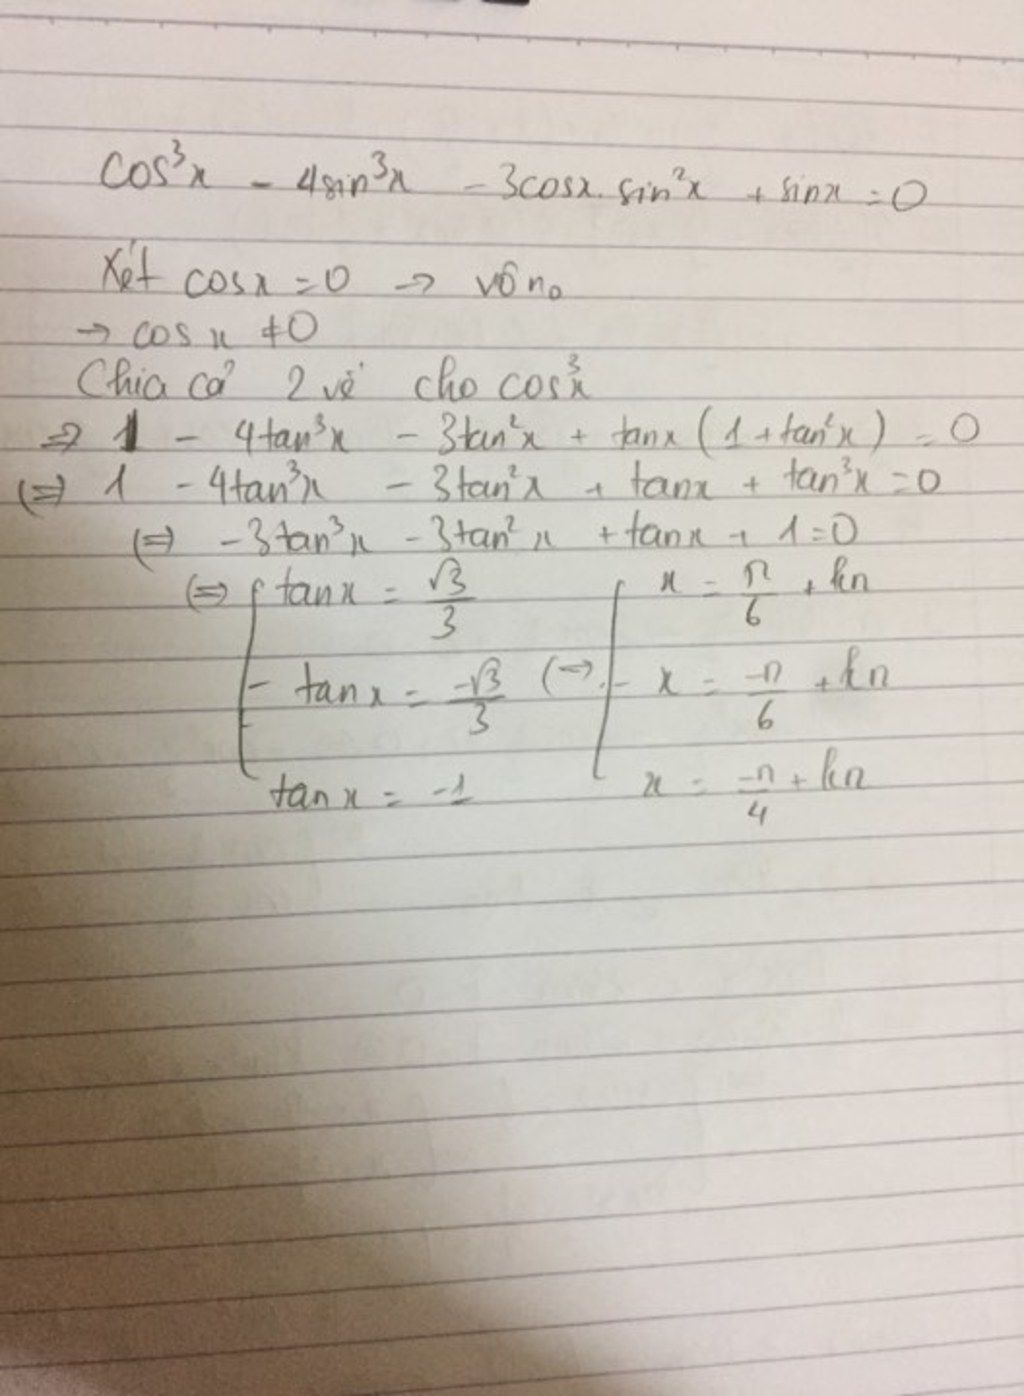 cos³x - 4sin³x - 3cosx.sin²x + sinx = 0
Xét cosx = 0 → vô n₀
→ cosx ≠ 0
Chia cả 2 vế cho cos³x
⇒ 1 - 4tan³x - 3tan²x + tanx(1 + tan²x) = 0
(⇒ 1 - 4tan³x - 3tan²x + tanx + tan³x = 0
(⇒ -3tan³x - 3tan²x + tanx + 1 = 0
(⇒ [ tanx = √3/3 [ x = π/6 + kπ
tanx = -√3/3 (⇒ x = -π/6 + kπ
tanx = -1 x = -π/4 + kπ